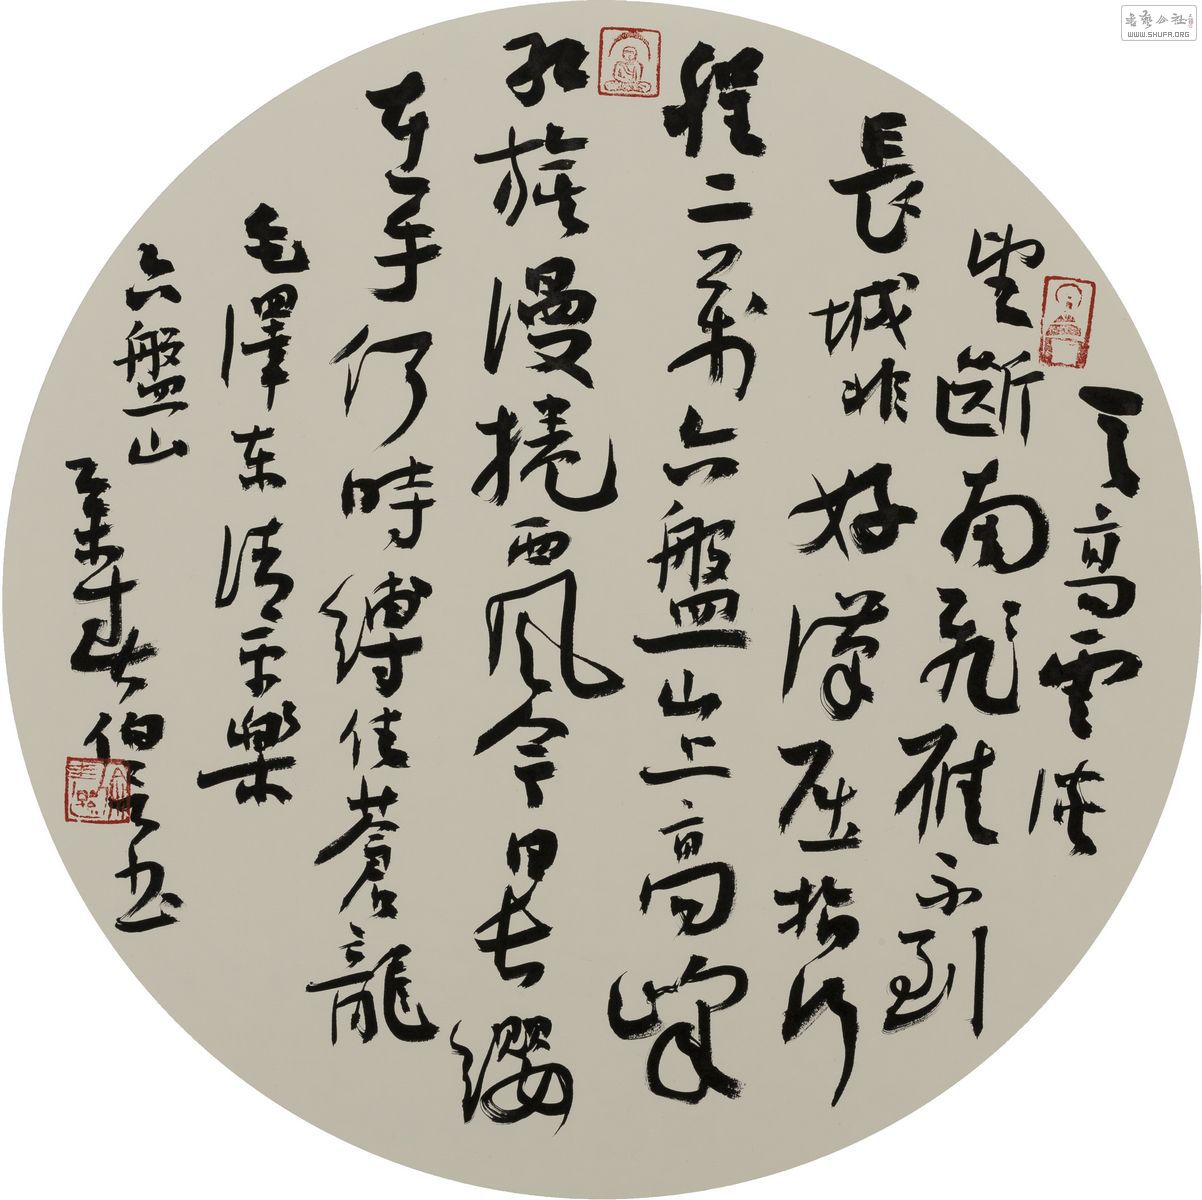 天高雲淡
望斷南飛雁不到
長城非好漢屈指行
程二萬六盤山上高峰
紅旗漫捲西風今日長纓
在手何時縛住蒼龍
毛澤東清平樂
六盤山
乙未春伯言书
書藝公社
WWW.SHUFA.ORG